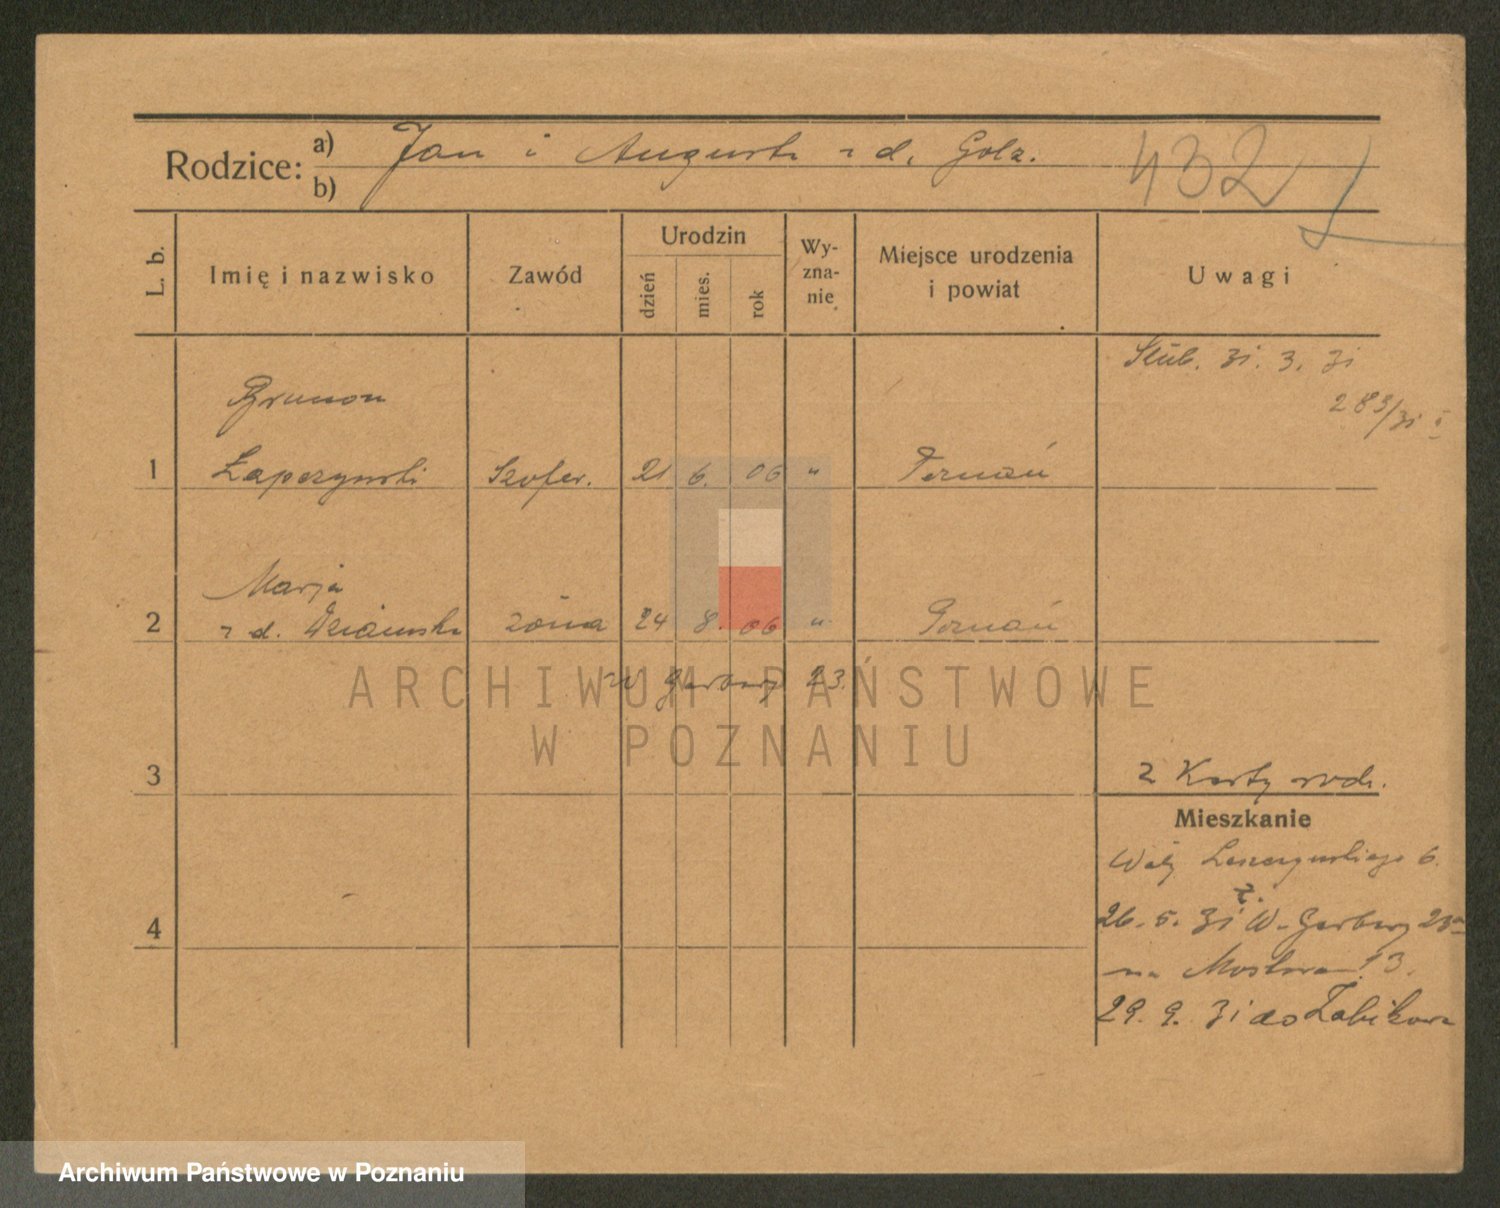 Rodzice: a) Jan i Augusta z d. Golz.
b)
432
L. b.
Imię i nazwisko
Zawód
Urodzin
dzień
mies.
rok
Wy-
zna-
nie
Miejsce urodzenia
i powiat
Uwagi
Ślub. 31. 3. 31
283/31
Brunon
1 Łapczyński Szofer. 21 6. 06 " Poznań
Marja
2 z d. żona 24 8. 06 " Poznań
W Garbary 23.
ARCHIWUM PAŃSTWOWE
W POZNANIU
3
2 Karty rodz.
Mieszkanie
Wały Leszczyńskiego 6.
4
26. 5. 31 W. Garbary
na Mostowa 13.
29. 9. 31 do Żabikowa
Archiwum Państwowe w Poznaniu